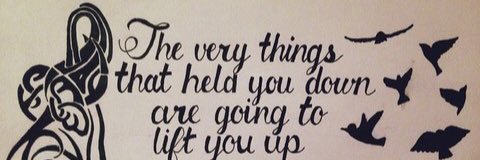 The very things
that held you down
are going to
lift you up